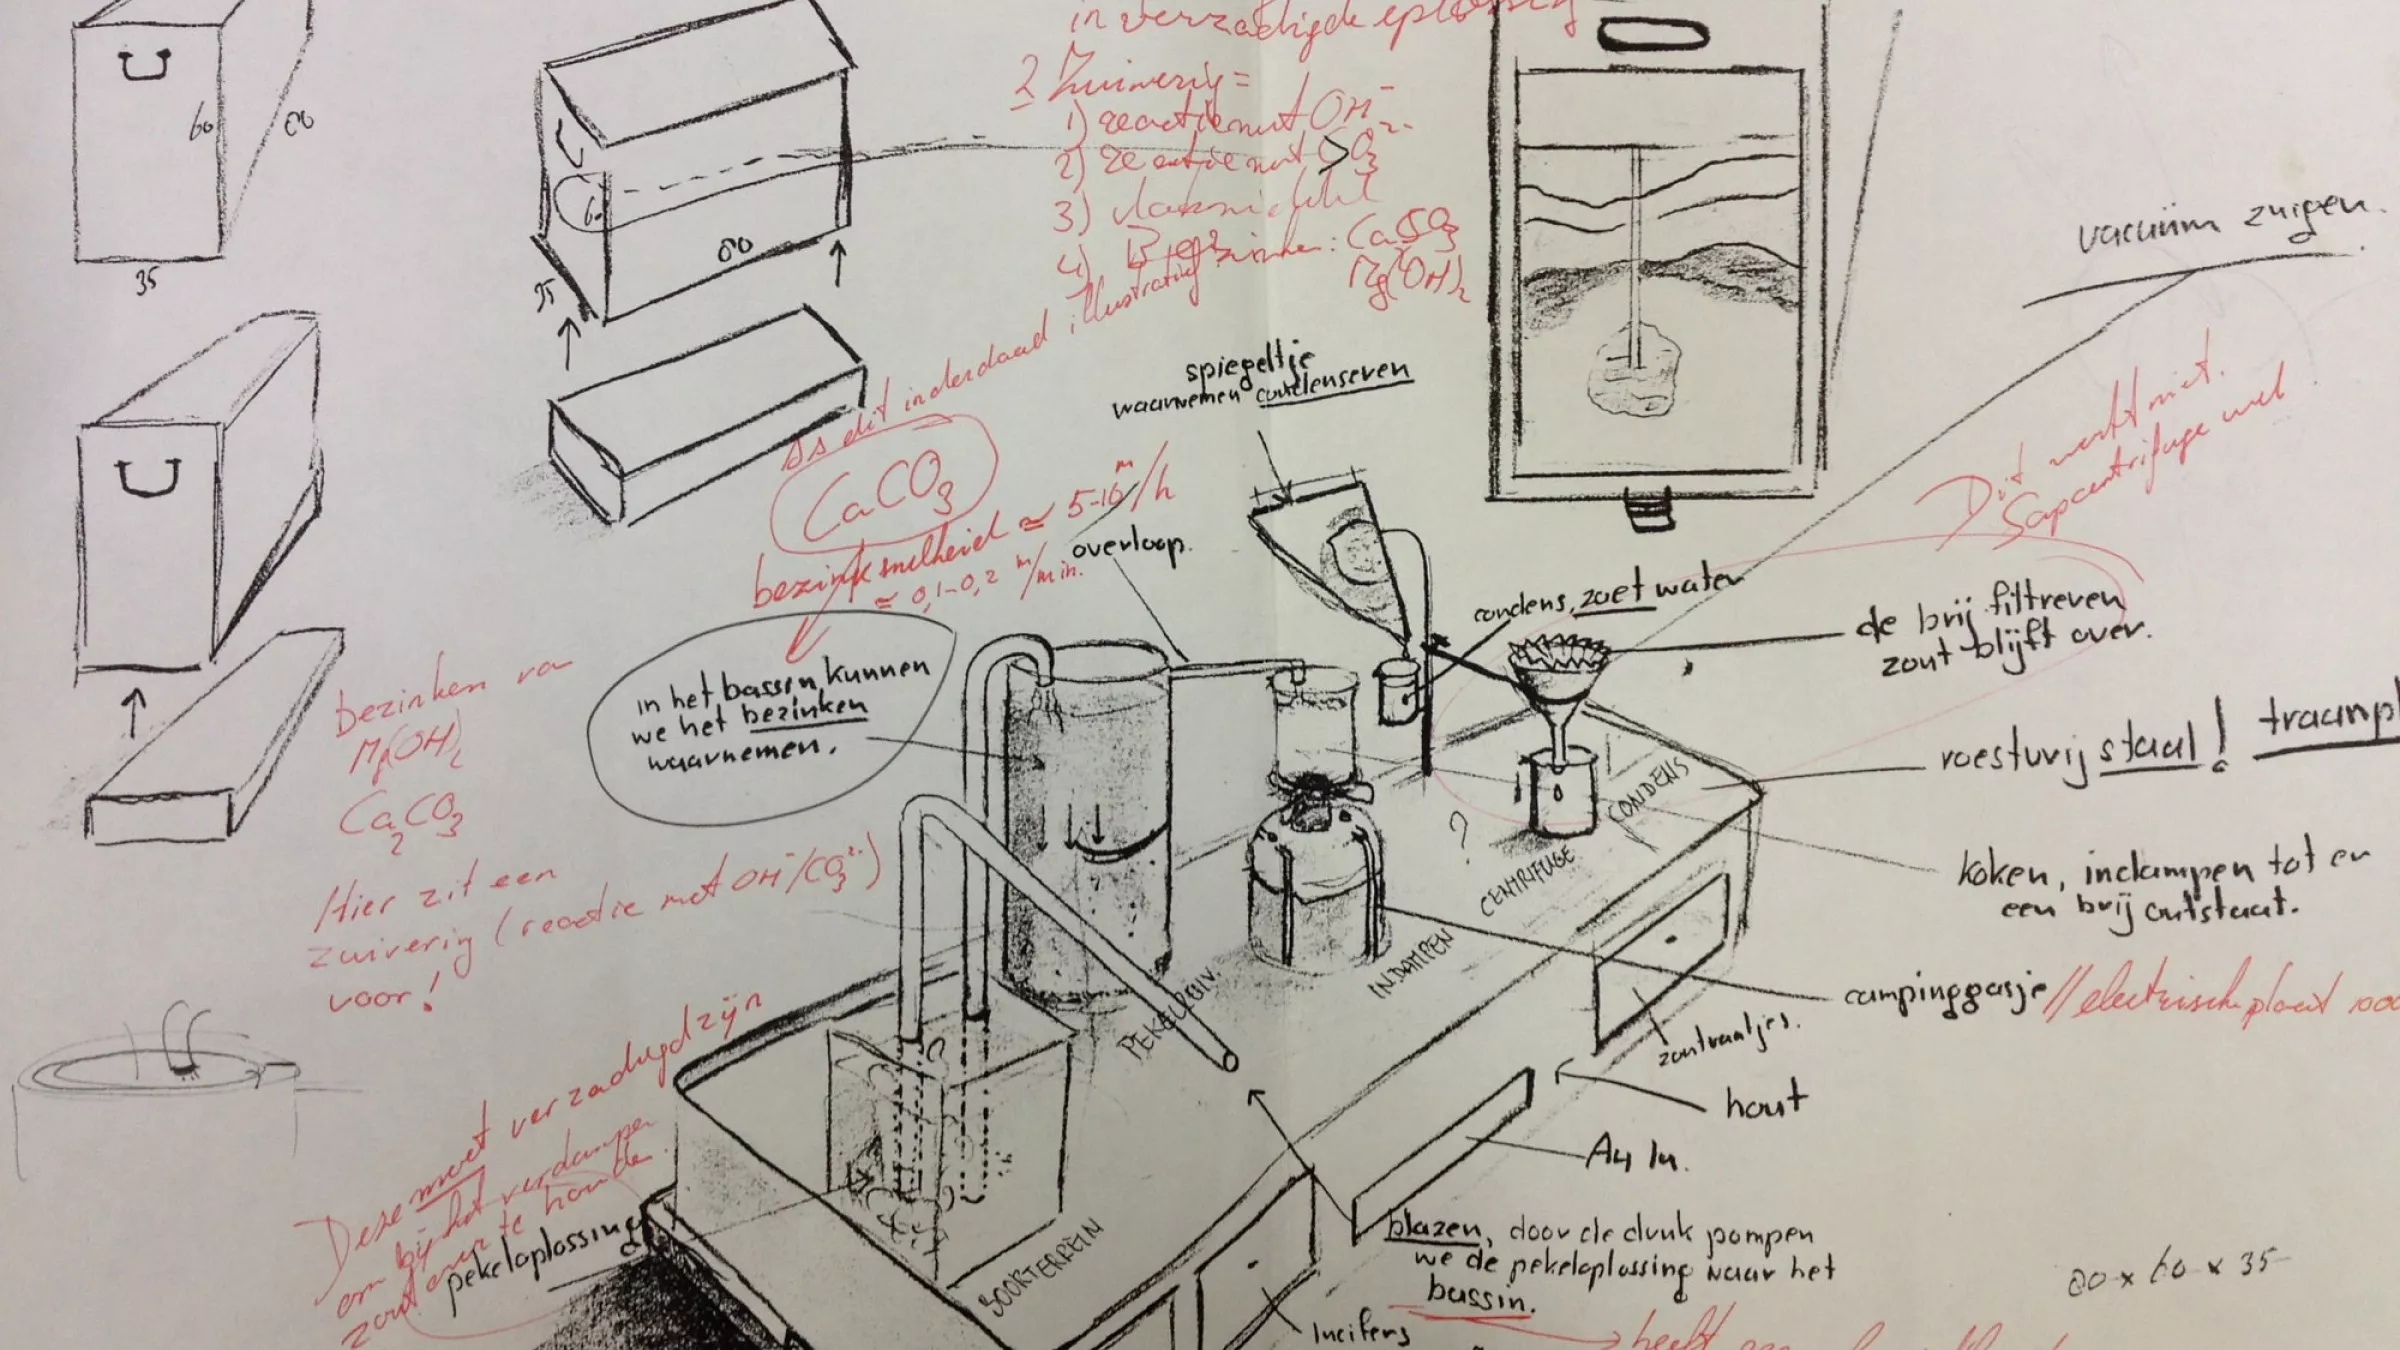 in verzadigde oplossing
2 Zuivering =
1) reactie met OH⁻
2) reactie met CO₃²⁻
3)
4) Bezinken: CaCO₃
Mg(OH)₂
60
80
35
60
80
35
vacuüm zuigen.
Dit werkt niet.
Sapcentrifuge wel.
spiegeltje
waarnemen condenseren
Is dit inderdaad illustratief
CaCO₃
bezinksnelheid ≃ 5-10 m/h
≃ 0,1-0,2 m/min.
overloop.
condens, zoet water
de brij filtreren
zout blijft over.
in het bassin kunnen
we het bezinken
waarnemen.
roestvrij staal! traanpl
bezinken van
Mg(OH)₂
Ca₂CO₃
Hier zit een
zuivering (reactie met OH⁻/CO₃²⁻)
voor!
CONDENS
?
CENTRIFUGE
INDAMPEN
PEKELZUIV.
BOORTERREIN
koken, indampen tot er
een brij ontstaat.
campinggasje // electrische plaat
zoutvaatjes.
hout
Deze moet verzadigd zijn
om bij het verdampen
zout over te houden.
pekeloplossing
blazen, door de druk pompen
we de pekeloplossing naar het
bassin.
lucifers
80 x 60 x 35
heeft